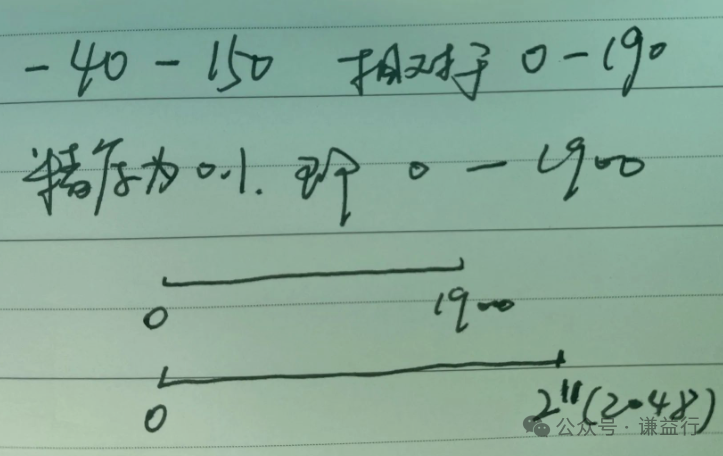 -40-150 相对于 0-190
精度为0.1. 即 0-1900
0 1900
0 2¹¹(2048)
公众号·谦益行